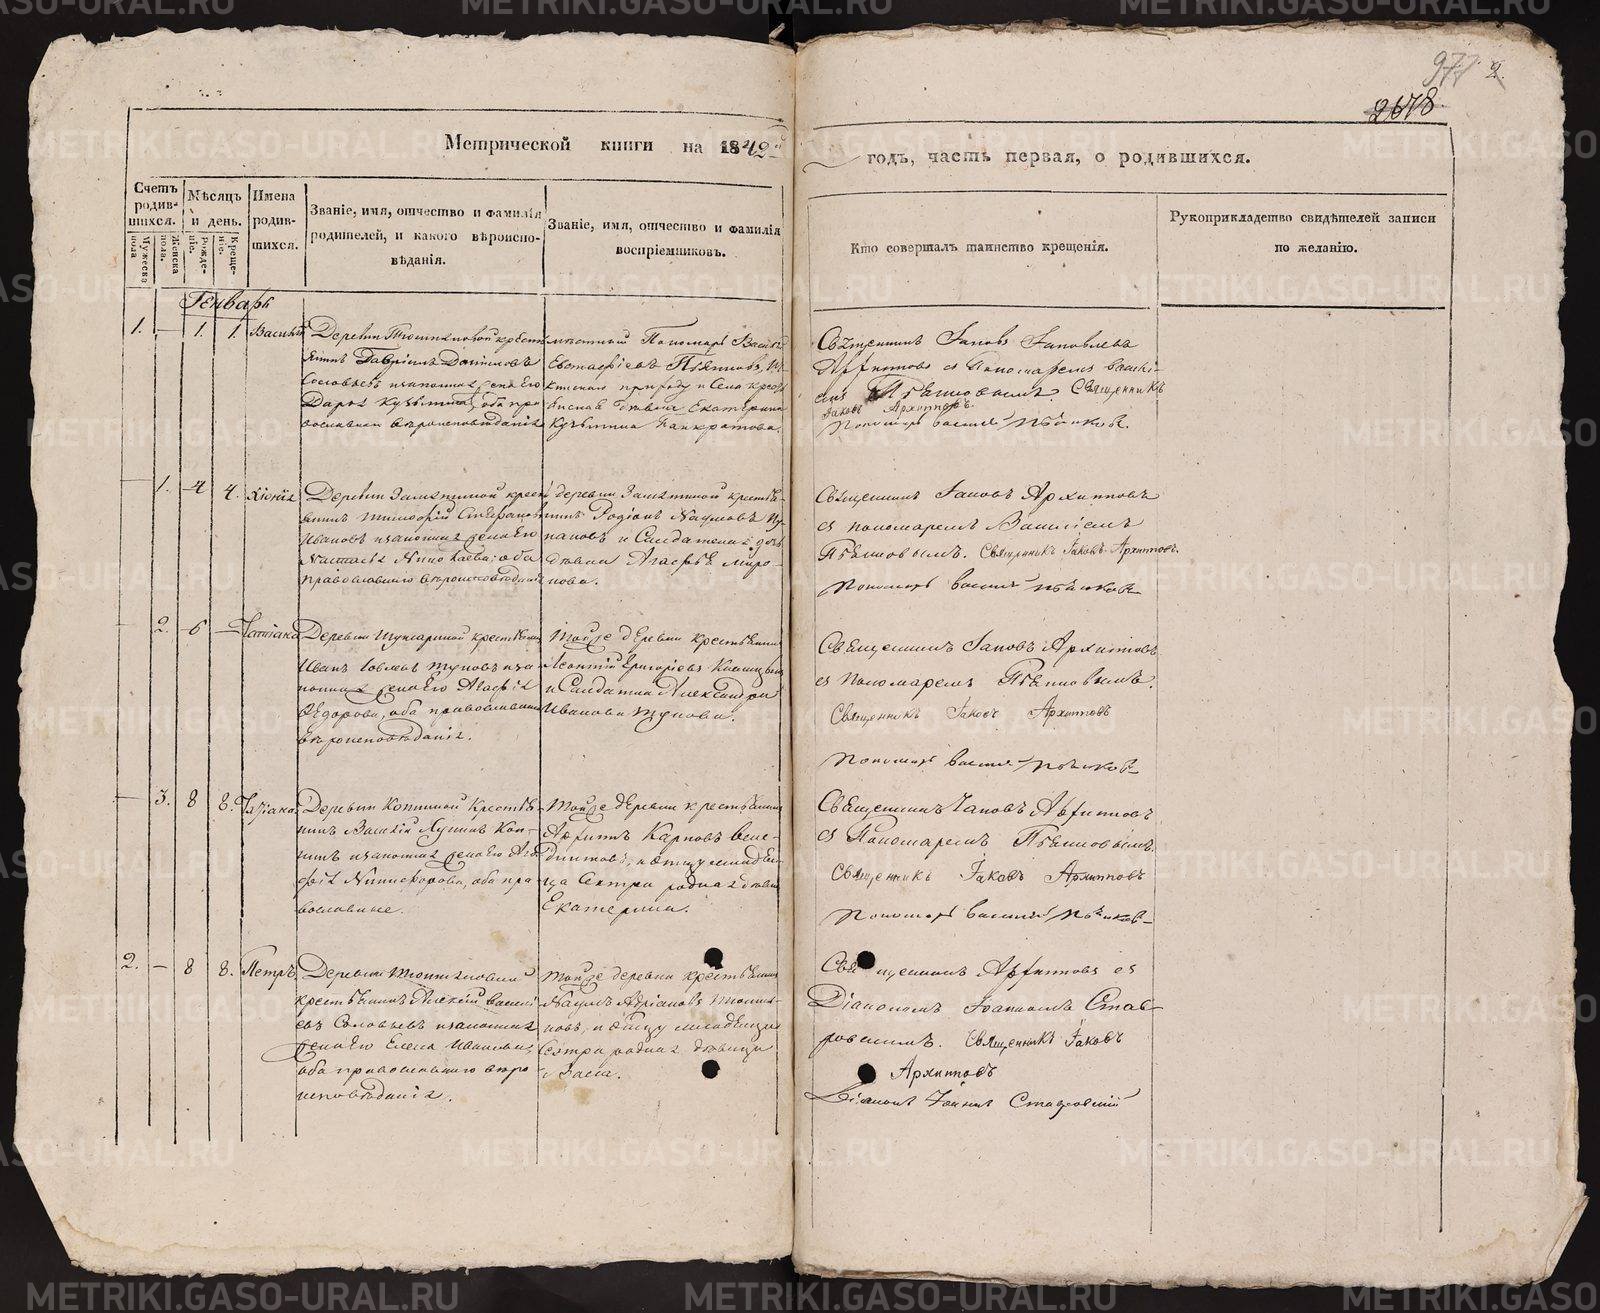 977 2.
2678
Метрической книги на 1842й
годъ, часть первая, о родившихся.
Счетъ родив-шихся.
Мужеска пола
Женска пола.
Мѣсяцъ и день.
Рожде-нiе.
Креще-нiе.
Имена родив-шихся.
Званiе, имя, отчество и фамилiя
родителей, и какого вѣроиспо-
вѣданiя.
Званiе, имя, отчество и фамилiя
воспрiемниковъ.
Кто совершалъ таинство крещенiя.
Рукоприкладство свидѣтелей записи
по желанiю.
Генварь
1. — 1. 1. Василiй
Деревни крестья
янинъ Гаврiилъ Даниловъ
Соловьевъ и законная жена Его
Дарья Кузьмина, оба пра
вославнаго вѣроисповѣданiя
Пономарь Василiй
Евстафiевъ Пѣнковъ,
приходу и Села крестья
дѣвица Екатерина
Кузьмина Панкратова.
Священникъ Iаковъ Iаковлевъ
Архиповъ съ Пономаремъ Васили-
емъ Пѣнковымъ. Священникъ
Iаковъ Архиповъ.
Пономарь Василiй Пѣнковъ.
— 1. 4 4. Хiонiя
Деревни крестья
янинъ Тимофiй Стефановъ
Ивановъ и законная жена Его
Настасья Николаева, оба
православнаго вѣроисповѣданiя
деревни крестья-
нинъ Родiонъ Наумовъ
и Салдатская дочь
дѣвица Агафья Миро-
нова.
Священникъ Iаковъ Архиповъ
съ пономаремъ Василiемъ
Пѣнковымъ. Священникъ Iаковъ Архиповъ.
Пономарь Василiй Пѣнковъ
— 2. 6 — Татiана
Деревни крестьянинъ
Иванъ Iовлевъ и за
конная жена Его Агафья
Ѳедорова, оба православнаго
вѣроисповѣданiя.
Той же деревни крестьянинъ
Леонтiй Григорiевъ
и Салдатка Александра
Иванова
Священникъ Iаковъ Архиповъ
съ Пономаремъ Пѣнковымъ.
Священникъ Iаковъ Архиповъ
Пономарь Василiй Пѣнковъ
— 3. 8 8. Татiана
Деревни Копниной Крестья
нинъ Василiй Коп-
нинъ и законная жена Его Ага
фья Никифорова, оба пра
вославные.
Той же деревни крестьянинъ
Архипъ Карповъ Вене-
диктовъ, и отцу младен-
ца Сестра родная дѣвица
Екатерина.
Священникъ Iаковъ Архиповъ
съ Пономаремъ Пѣнковымъ.
Священникъ Iаковъ Архиповъ
Пономарь Василiй Пѣнковъ
2. — 8 8. Петръ
Деревни
крестьянинъ Алексiй Василi
евъ Соловьевъ и законная
жена Его Елена Иванова,
оба православнаго вѣро
исповѣданiя.
Той же деревни крестьянинъ
Наумъ Адрiановъ
и отцу младенца
Сестра родная дѣвица
Васса.
Священникъ Архиповъ съ
Дiакономъ Iоанномъ Став-
ровскимъ. Священникъ Iаковъ
Архиповъ
Дiаконъ Iоаннъ Ставровскiй
METRIKI.GASO-URAL.RU